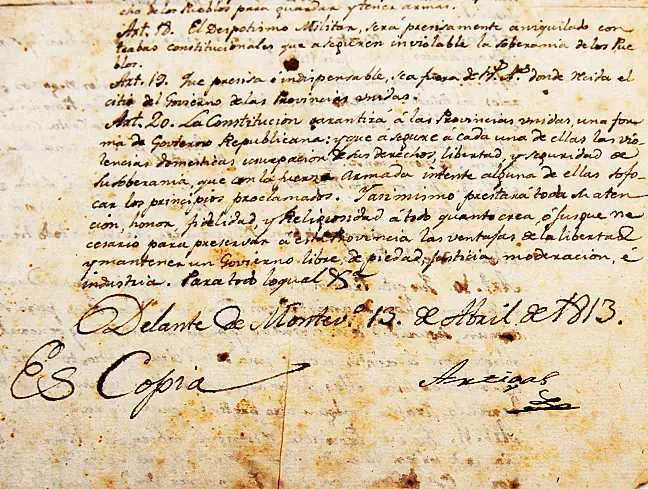 cho de los Pueblos para guardar y tener armas.
Art. 18. El Despotismo Militar, será precisamente aniquilado con
trabas constitucionales que aseguren inviolable la soberania de los Pue
blos.
Art. 19. Que precisa e indispensable, sea fuera de Bs. As. donde recida el
citio del Govierno de las Provincias unidas.
Art. 20. La Constitucion garantira á las Provincias unidas, una for
ma de Govierno Republicana: y que asegure a cada una de ellas las vio
lencias domesticas usurpacion de sus derechos, libertad, y seguridad de
su soberania, que con la fuerza armada intente alguna de ellas sofo
car los principios proclamados. Y asimismo prestará toda su aten
cion, honor, fidelidad y Religiosidad a todo quanto crea, o jusque ne
cesario para preservar á esta Provincia las ventajas de la libertad
y mantener un Govierno libre, de piedad, justicia, moderacion, é
industria. Para todo lo qual &a.
Delante de Montevo. 13. de Abril de 1813.
Es Copia
Artigas